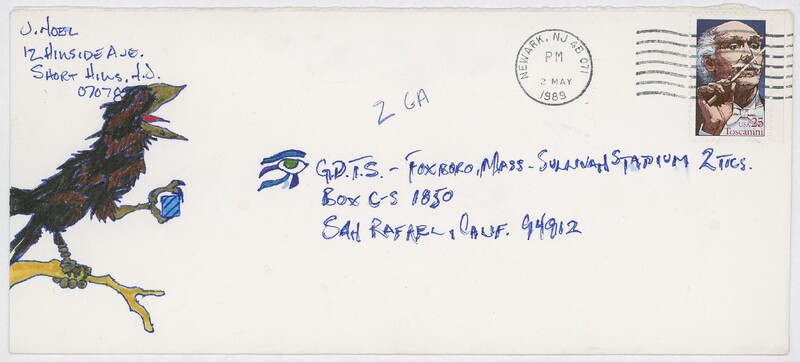 J. NOEL
12 HILLSIDE AVE.
SHORT HILLS, N.J.
07078
NEWARK, NJ 4B 071
PM
2 MAY
1989
USA 25
Toscanini
2 GA
G.D.T.S. - FOXBORO, MASS - SULLIVAN STADIUM 2 TICS.
BOX C-S 1850
SAN RAFAEL, CALIF. 94912